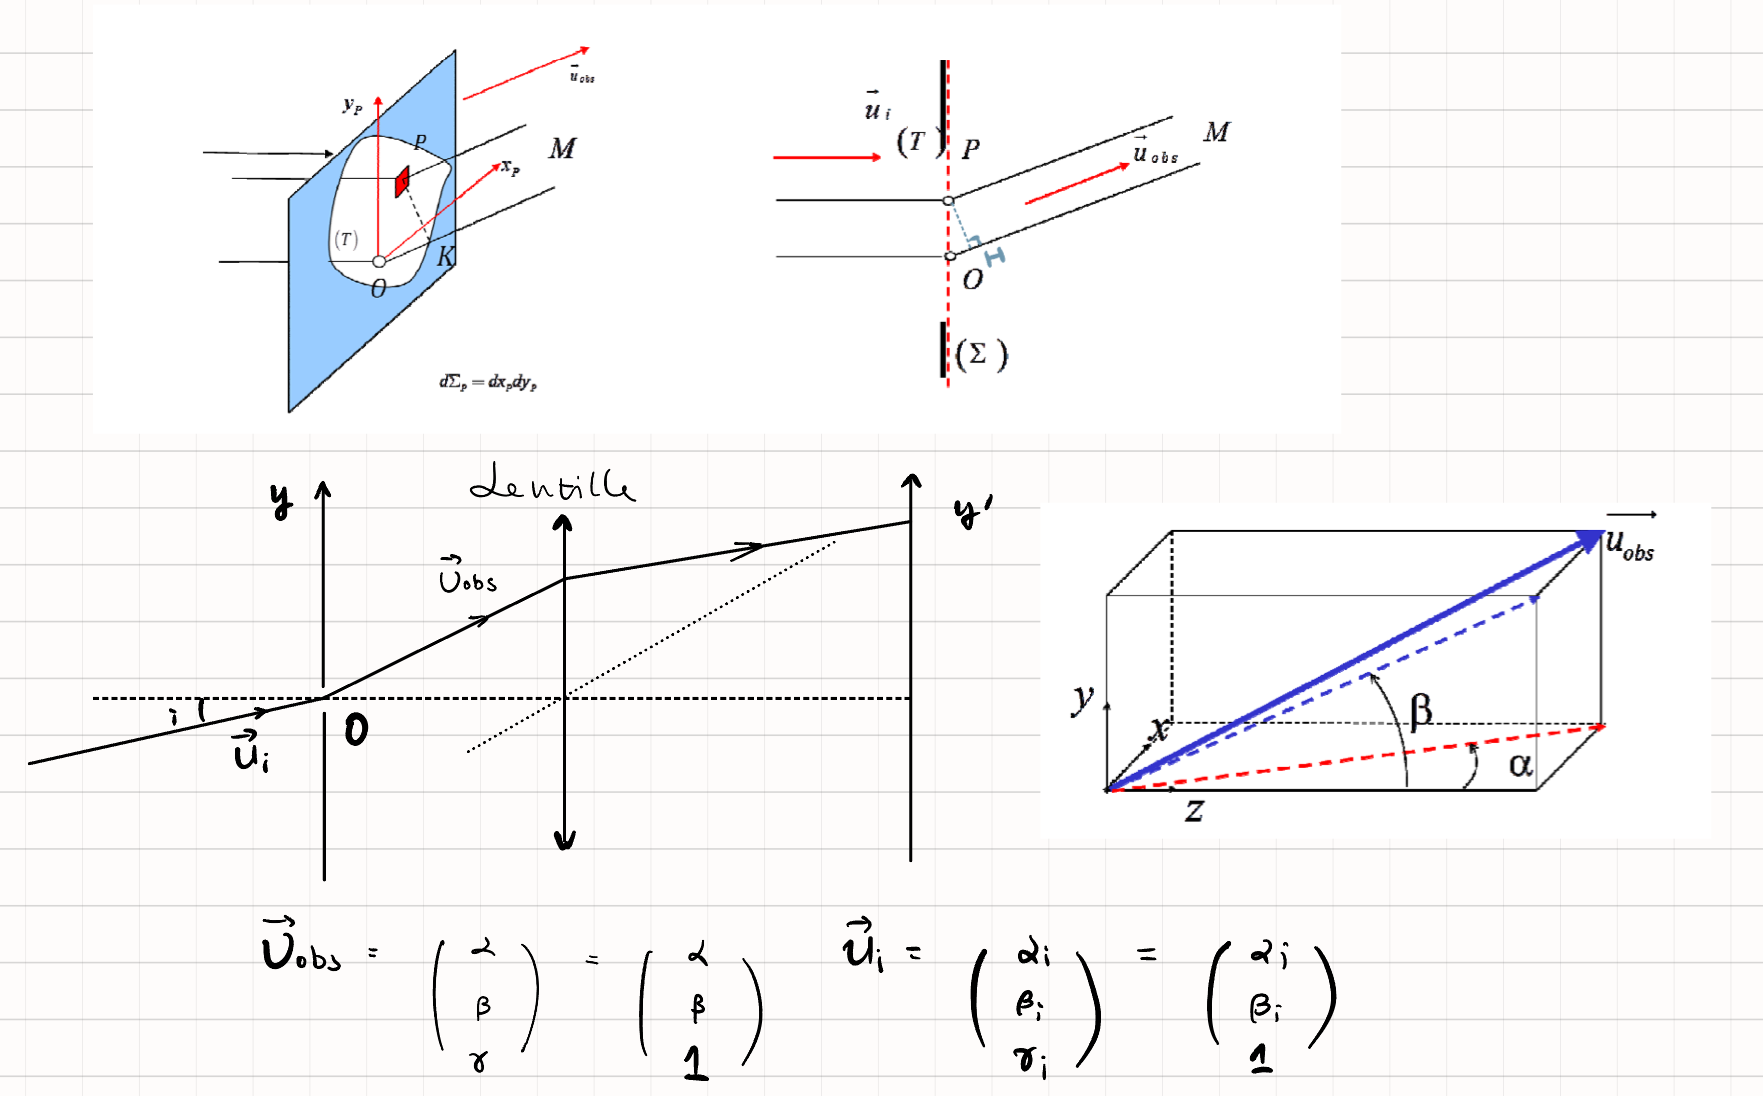 u⃗ obs
y_P
P
M
x_P
(T)
K
O
dΣ_p = dx_p dy_p
u⃗ i
(T)
P
M
u⃗ obs
H
O
(Σ)
Lentille
y
y'
U⃗obs
i
O
u⃗i
u⃗obs
y
x
β
α
z
U⃗obs = ( α β γ ) = ( α β 1 ) u⃗i = ( αi βi γi ) = ( αi βi 1 )